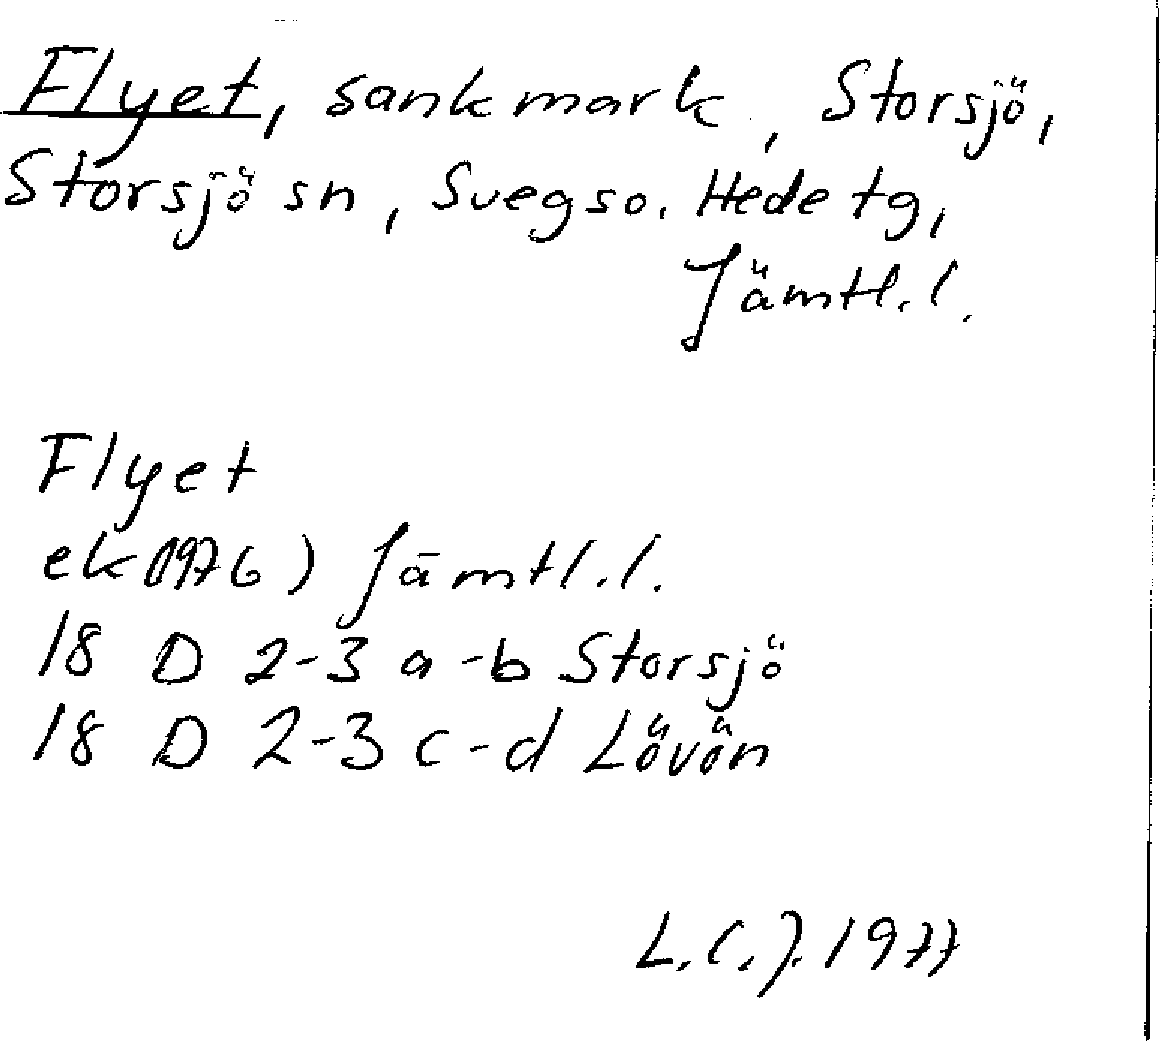 Flyet, sankmark, Storsjö,
Storsjö sn, Svegs o. Hede tg,
Jämtl. l.
Flyet
ek (1976) Jämtl. l.
18 D 2-3 a-b Storsjö
18 D 2-3 c-d Lövön
L.C.J. 1977